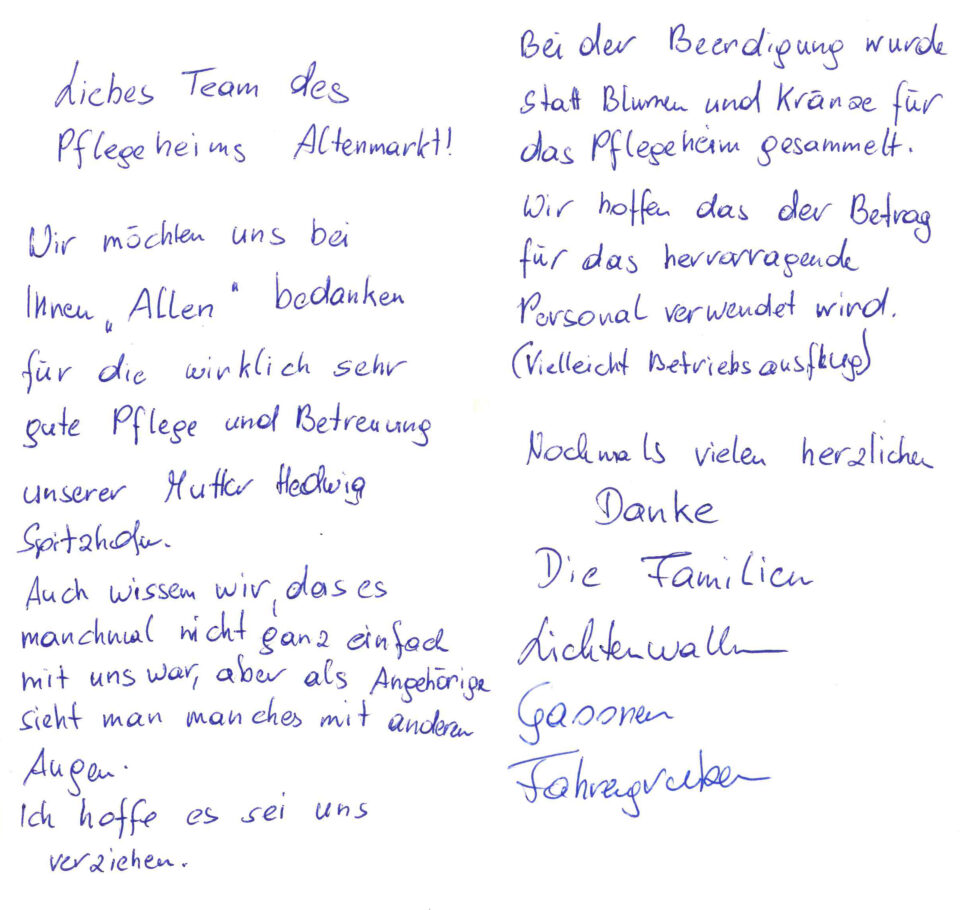 Liebes Team des
Pflegeheims Altenmarkt!
Wir möchten uns bei
Ihnen „Allen“ bedanken
für die wirklich sehr
gute Pflege und Betreuung
unserer Mutter Hedwig
Spitzhofer.
Auch wissen wir, das es
manchmal nicht ganz einfach
mit uns war, aber als Angehörige
sieht man manches mit anderen
Augen.
Ich hoffe es sei uns
verziehen.
Bei der Beerdigung wurde
statt Blumen und Kränze für
das Pflegeheim gesammelt.
Wir hoffen das der Betrag
für das hervorragende
Personal verwendet wird.
(Vielleicht Betriebsausflug)
Nochmals vielen herzlichen
Danke
Die Familien
Lichtenwalln